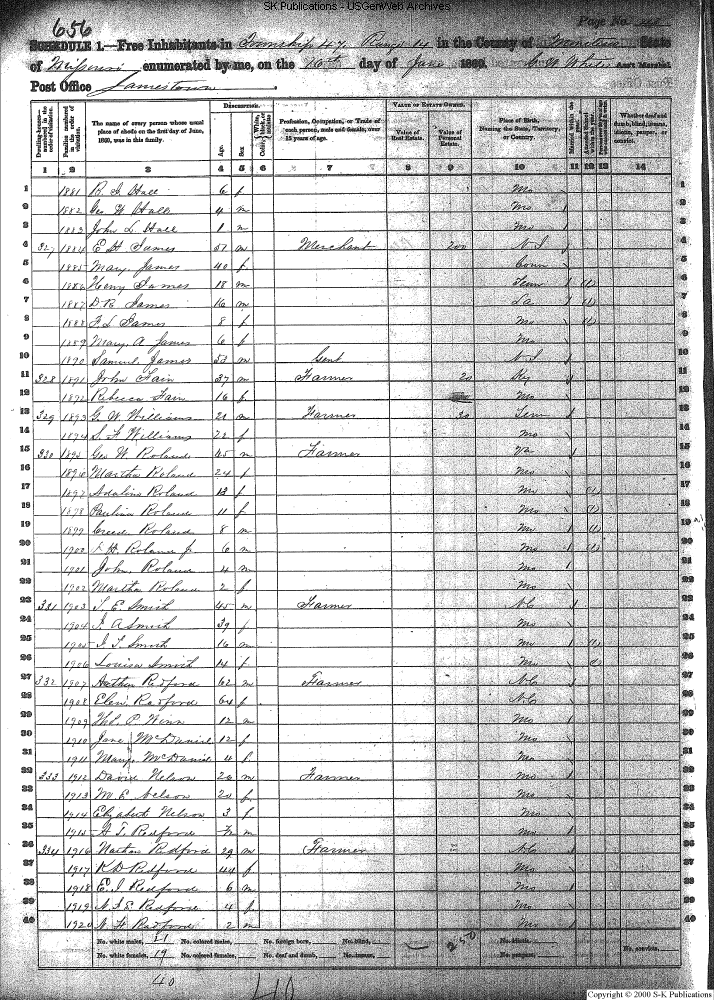 SK Publications - USGenWeb Archives
656
Page No.
SCHEDULE 1.—Free Inhabitants in Township 47 Range 14 in the County of Moniteau State
of Missouri enumerated by me, on the 16th day of June 1860. Ass't Marshal.
Post Office Jamestown
Dwelling-houses—numbered in the order of visitation.
Families numbered in the order of visitation.
The name of every person whose usual place of abode on the first day of June, 1860, was in this family.
DESCRIPTION.
Age.
Sex
Color, White, black, or mulatto
Profession, Occupation, or Trade of each person, male and female, over 15 years of age.
VALUE OF ESTATE OWNED.
Value of Real Estate.
Value of Personal Estate.
Place of Birth, Naming the State, Territory, or Country.
Married within the year.
Whether deaf and dumb, blind, insane, idiotic, pauper, or convict.
1 2 3 4 5 6 7 8 9 10 11 12 13 14
1 1881 Hall 6 f Mo 1
2 1882 Geo W Hall 4 m Mo 2
3 1883 John L Hall 1 m Mo 3
4 327 1884 E H James 57 m Merchant 200 N J 4
5 1885 Mary James 40 f Conn 5
6 1886 Henry James 18 m Tenn 6
7 1887 D R James 16 m La 7
8 1888 F L James 8 f Mo 8
9 1889 Mary A James 6 f Mo 9
10 1890 Samuel James 53 m Gent N J 10
11 328 1891 John Fain 37 m Farmer 20 Ky 11
12 1892 Rebecca Fain 16 f Mo 12
13 329 1893 G W Williams 21 m Farmer 30 Tenn 13
14 1894 S F Williams 22 f Mo 14
15 330 1895 Geo W Roland 45 m Farmer Va 15
16 1896 Martha Roland 24 f Mo 16
17 1897 Adaline Roland 13 f Mo 17
18 1898 Paulina Roland 11 f Mo 18
19 1899 Creed Roland 8 m Mo 19
20 1900 H Roland 6 m Mo 20
21 1901 John Roland 4 m Mo 21
22 1902 Martha Roland 2 f Mo 22
23 331 1903 T E Smith 45 m Farmer N C 23
24 1904 J A Smith 39 f Mo 24
25 1905 J T Smith 16 m Mo 25
26 1906 Louisa Smith 14 f Mo 26
27 332 1907 Redford 62 m Farmer N C 27
28 1908 Elen Redford 64 f N C 28
29 1909 Tho. P. Winn 12 m Mo 29
30 1910 Jane McDaniel 12 f Mo 30
31 1911 Mary McDaniel 4 f Mo 31
32 333 1912 David Nelson 20 m Farmer Mo 32
33 1913 M E Nelson 20 f Mo 33
34 1914 Elizabeth Nelson 3 f Mo 34
35 1915 H T Redford m Mo 35
36 334 1916 Nathan Redford 29 m Farmer N C 36
37 1917 K D Redford 44 f Mo 37
38 1918 E J Redford 6 m Mo 38
39 1919 N J E Redford 4 f Mo 39
40 1920 N H Redford 2 m Mo 40
No. white males, 21 No. colored males, No. foreign born, No. blind, 250 No. idiotic,
No. white females, 19 No. colored females, No. deaf and dumb, No. insane, No. paupers, No. convicts,
40
40
Copyright © 2000 S-K Publications